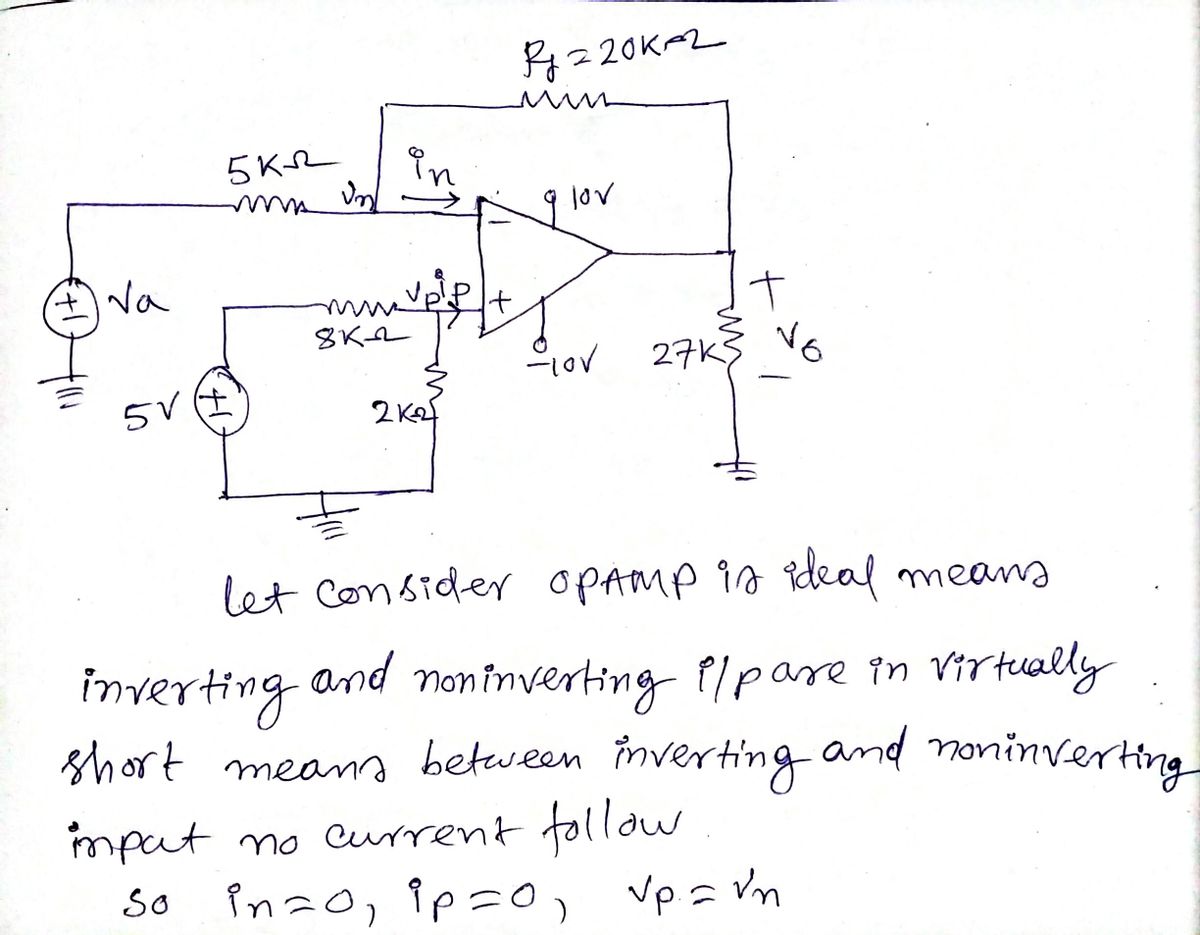 Rf = 20KΩ
5KΩ
Vn
in
10V
-
+ Va
Vp ip
+
8KΩ
-10V
27K
+
Vo
-
5V +
2KΩ
let consider OPAMP is ideal means
inverting and noninverting i/p are in virtually
short means between inverting and noninverting
input no current follow
so in=0, ip=0, Vp = Vn